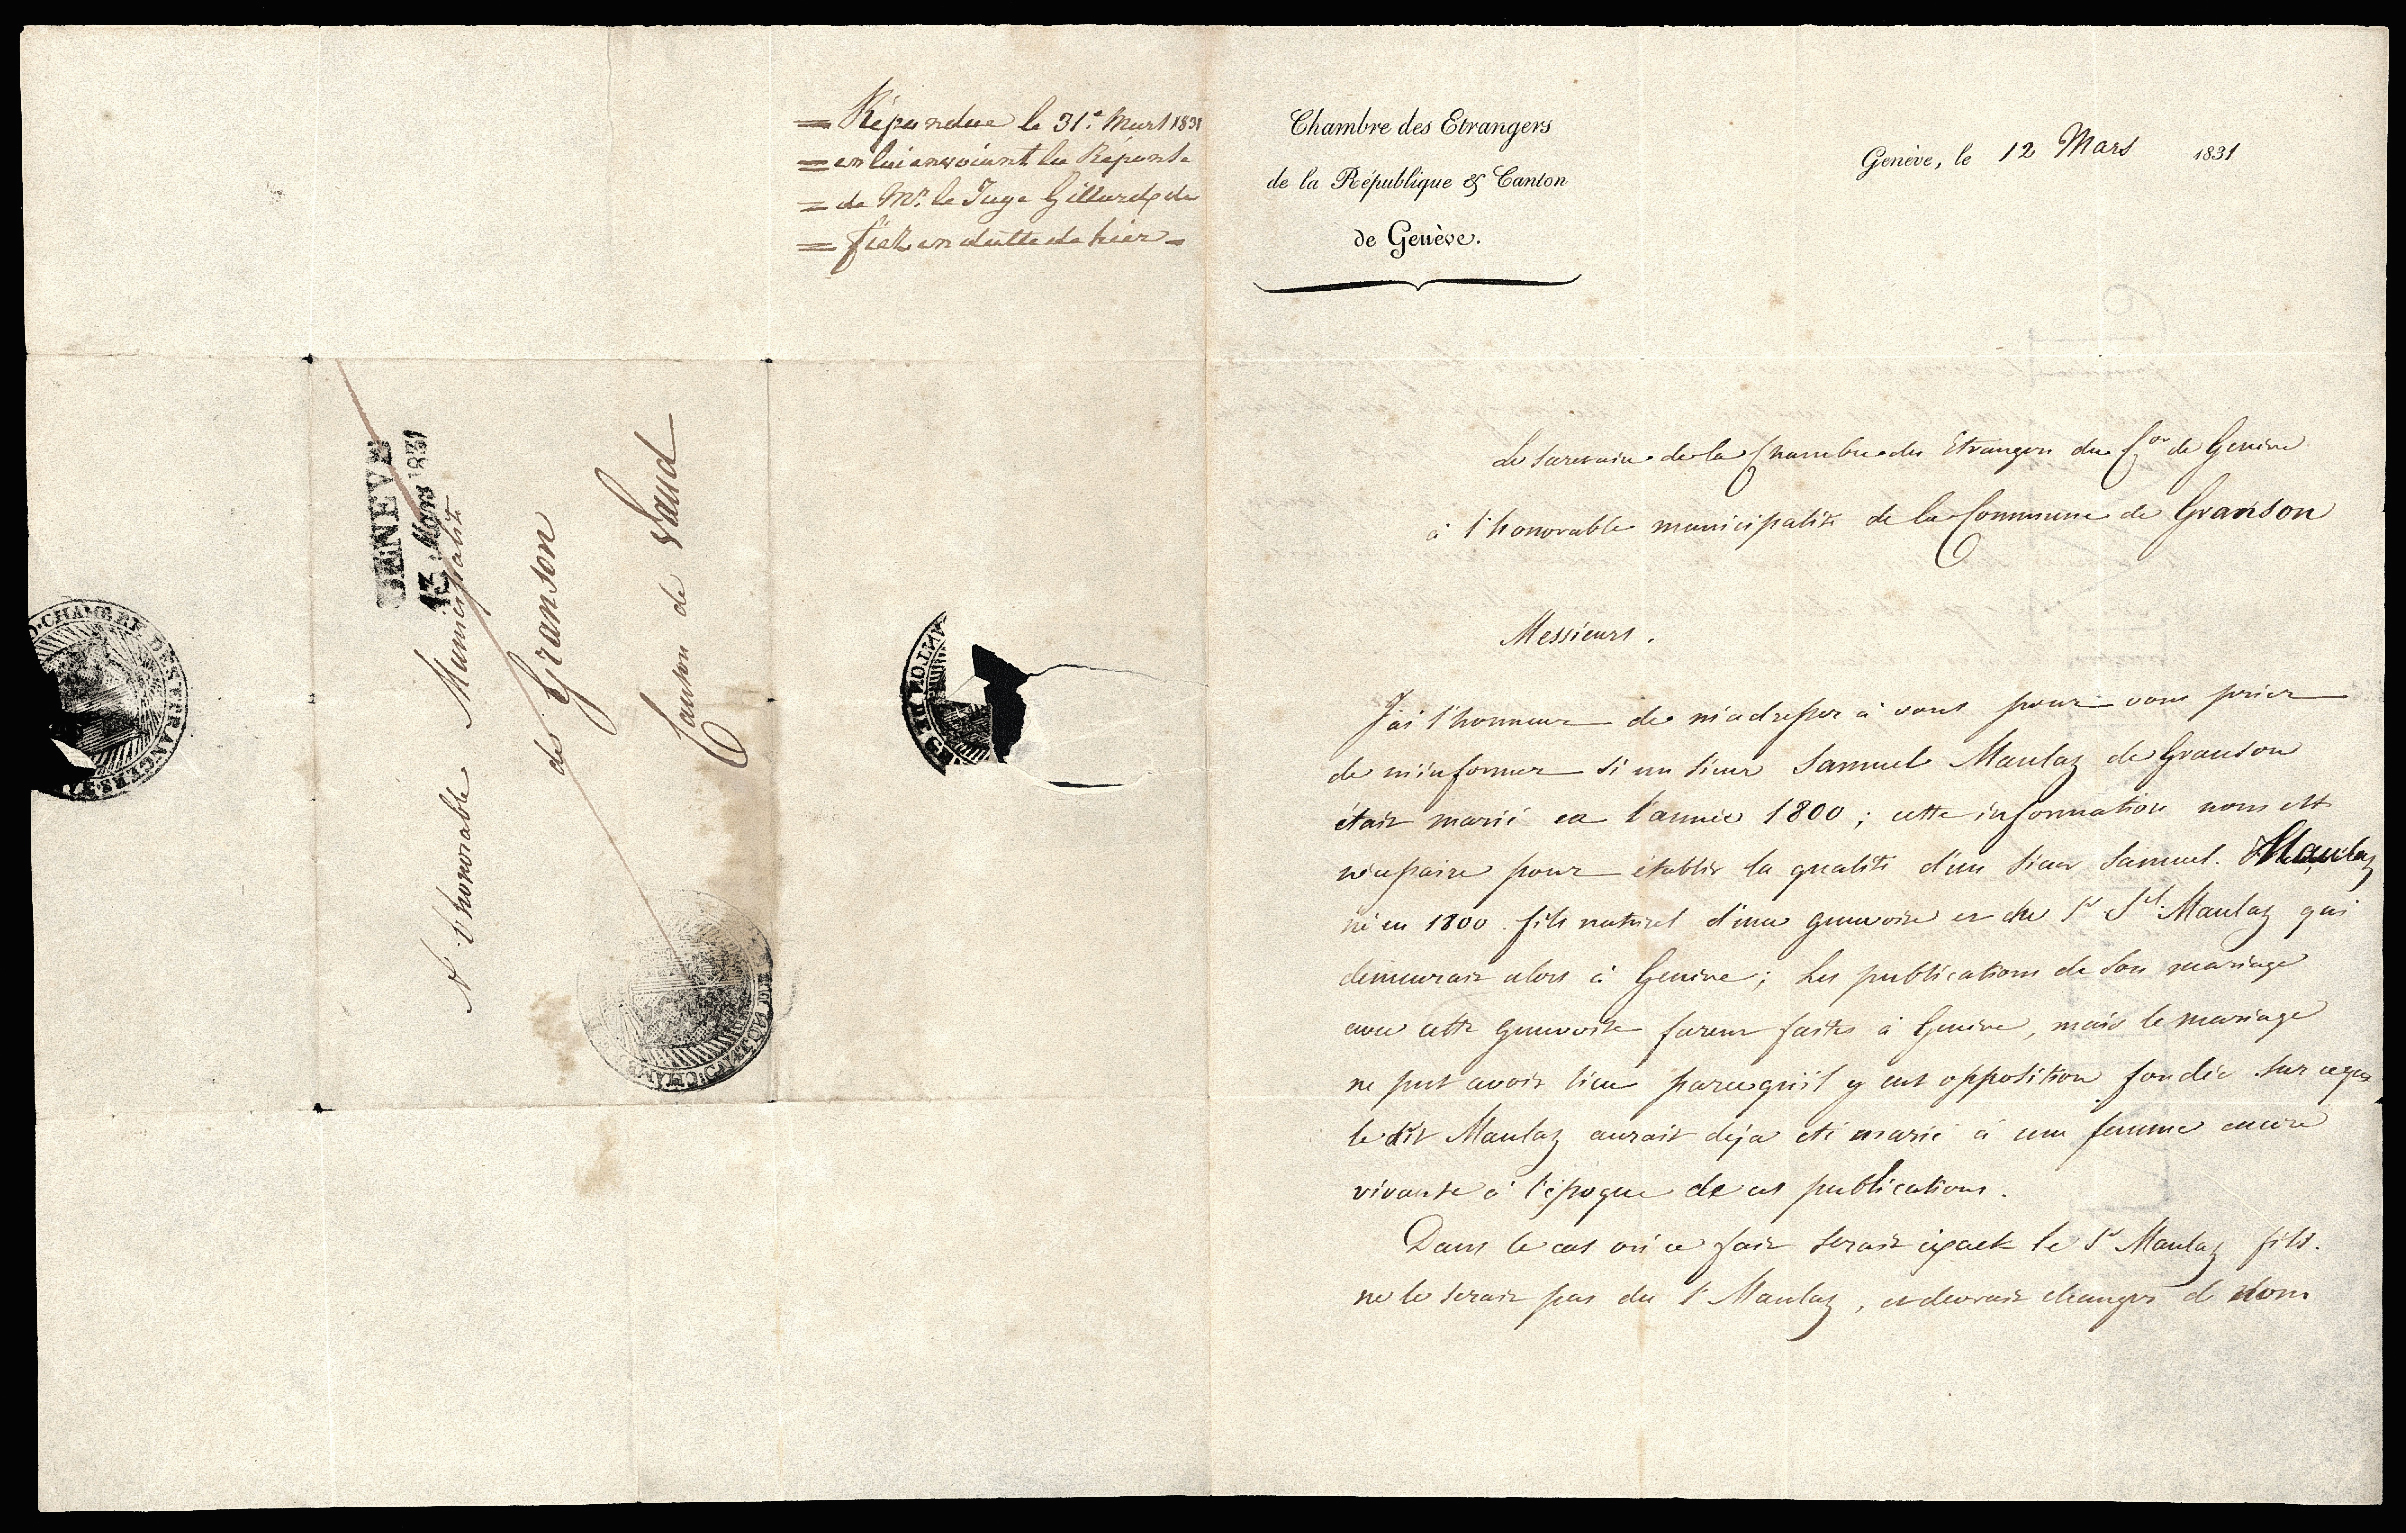 = Répondue le 31.e Mars 1831
= en lui envoiant la Réponse
= de Mr. le Juge Gillard de
= fiez en datte de hier =
GENEVE
13 Mars 1831
A l'honorable Municipalité
de Granson
Canton de Vaud
CHAMBRE DES ETRANGERS
Chambre des Etrangers
de la République & Canton
de Genève.
Genève, le 12 Mars 1831
Le Secretaire de la Chambre des Etrangers du Con de Genève
à l'honorable municipalité de la Commune de Granson
Messieurs.
J'ai l'honneur de m'adresser à vous pour vous prier
de m'informer si un sieur Samuel Maulaz de Granson
était marié en l'année 1800 ; cette information nous est
nécessaire pour établir la qualité d'un sieur Samuel Maulaz
né en 1800 fils naturel d'une genevoise et du Sr Sl. Maulaz qui
demeurait alors à Genève ; les publications de son mariage
avec cette genevoise furent faites à Genève, mais le mariage
ne put avoir lieu parcequ'il y eut opposition fondée sur ceque
le dit Maulaz aurait deja été marié à une femme encore
vivante à l'époque de ces publications.
Dans le cas où ce fait serait exact le Sr Maulaz fils
ne le serait pas du Sr Maulaz, et devrait changer de nom